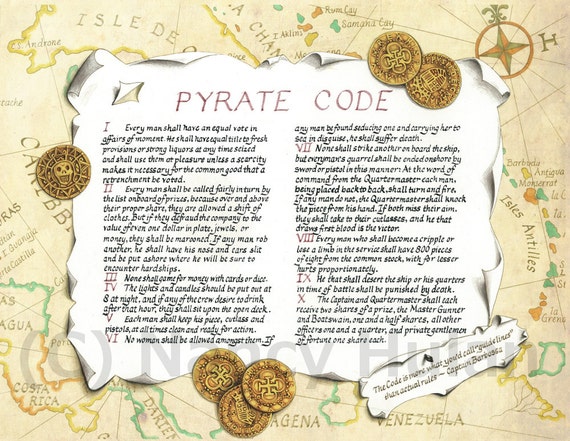 ISLE DE
CHANGE
Rum Cay
Samana Cay
S. Androne
PYRATE CODE
I Every man shall have an equal vote in
affairs of moment. He shall have equal title to fresh
provisions or strong liquors at any time seized
and shall use them at pleasure unless a scarcity
makes it necessary for the common good that a
retrenchment be voted.
II Every man shall be called fairly in turn by
the list on board of prizes, because over and above
their proper share, they are allowed a shift of
clothes. But if they defraud the company to the
value of even one dollar in plate, jewels, or
money, they shall be marooned. If any man rob
another he shall have his nose and ears slit
and be put ashore where he will be sure to
encounter hardships.
III None shall game for money with cards or dice.
IV The lights and candles should be put out at
8 at night, and if any of the crew desire to drink
after that hour, they shall sit upon the open deck.
V Each man shall keep his piece, cutlass and
pistols, at all times clean and ready for action.
VI No woman shall be allowed amongst them. If
any man be found seducing one and carrying her to
sea in disguise, he shall suffer death.
VII None shall strike another on board the ship,
but every man's quarrel shall be ended onshore by
sword or pistol in this manner: At the word of
command from the Quartermaster each man,
being placed back to back, shall turn and fire.
If any man do not, the Quartermaster shall knock
the piece from his hand. If both miss their aim,
they shall take to their cutlasses, and he that
draws first blood is the victor.
VIII Every man who shall become a cripple or
lose a limb in the service shall have 800 pieces
of eight from the common stock, with for lesser
hurts proportionately.
IX He that shall desert the ship or his quarters
in time of battle shall be punished by death.
X The Captain and Quartermaster shall each
receive two shares of a prize, the Master Gunner
and Boatswain, one and a half shares, all other
officers one and a quarter, and private gentlemen
of fortune one share each.
"The Code is more what you'd call 'guide lines'
than actual rules" ~ Captain Barbossa
Barbuda
Antigua
Montserrat
Isles Antilles
COSTA
RICA
PANAMA
VENEZUELA
(C) Nancy